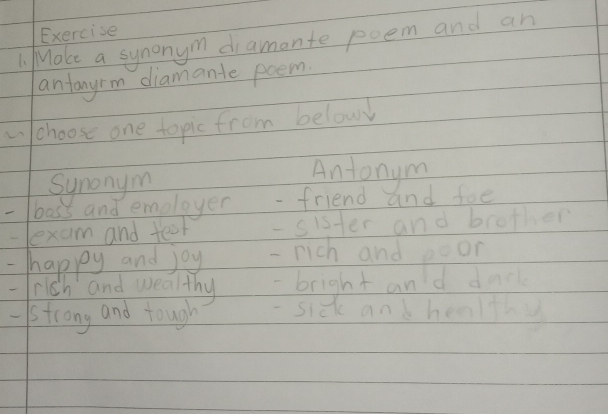 Exercise
1. Make a synonym diamante poem and an
antonyrm diamante poem.
choose one topic from below
Synonym Antonym
- boss and employer - friend and foe
- exam and test - sister and brother
- happy and joy - rich and poor
- rish and wealthy - bright and dark
- strong and tough - sick and healthy